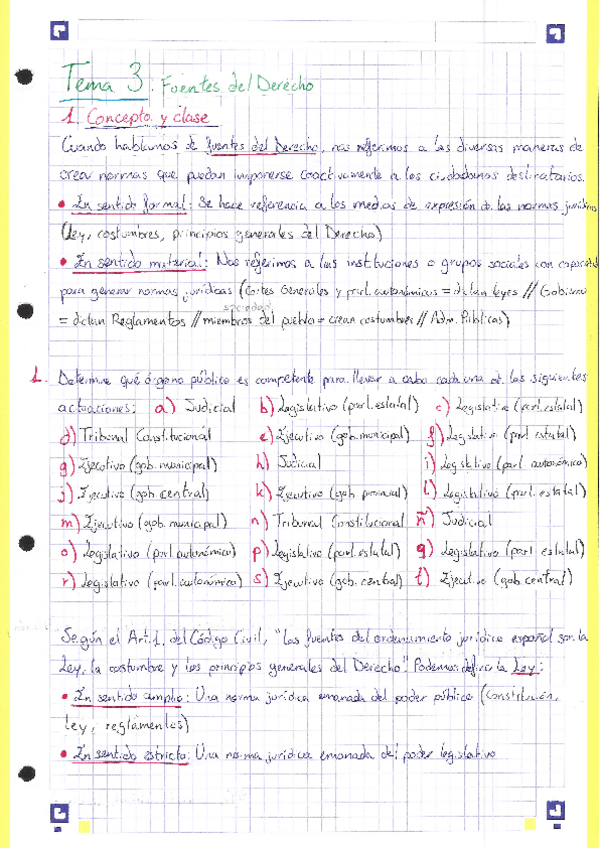 Tema 3: Fuentes del Derecho
1. Concepto y clase
Cuando hablamos de fuentes del Derecho, nos referimos a las diversas maneras de
crear normas que puedan imponerse coactivamente a los ciudadanos destinatarios.
• En sentido formal: Se hace referencia a los medios de expresión de las normas jurídicas
(Ley, costumbres, principios generales del Derecho)
• En sentido material: Nos referimos a las instituciones o grupos sociales con capacidad
para generar normas jurídicas (Cortes Generales y parl. autonómicos = dictan leyes // Gobierno
sociedad
= dictan Reglamentos // miembros del pueblo = crean costumbres // Adm. Públicas)
1. Determine qué órgano público es competente para llevar a cabo cada una de las siguientes
actuaciones: a) Judicial b) Legislativo (parl. estatal) c) Legislativo (parl. estatal)
d) Tribunal Constitucional e) Ejecutivo (gob. municipal) f) Legislativo (parl. estatal)
g) Ejecutivo (gob. municipal) h) Judicial i) Legislativo (parl. autonómico)
j) Ejecutivo (gob. central) k) Ejecutivo (gob. provincial) l) Legislativo (parl. estatal)
m) Ejecutivo (gob. municipal) n) Tribunal Constitucional ñ) Judicial
o) Legislativo (parl. autonómico) p) Legislativo (parl. estatal) q) Legislativo (parl. estatal)
r) Legislativo (parl. autonómico) s) Ejecutivo (gob. central) t) Ejecutivo (gob. central)
Según el Art. 1. del Código Civil, "las fuentes del ordenamiento jurídico español son la
Ley, la costumbre y los principios generales del Derecho". Podemos definir la Ley:
• En sentido amplio: Una norma jurídica emanada del poder público (Constitución,
ley, reglamentos)
• En sentido estricto: Una norma jurídica emanada del poder legislativo